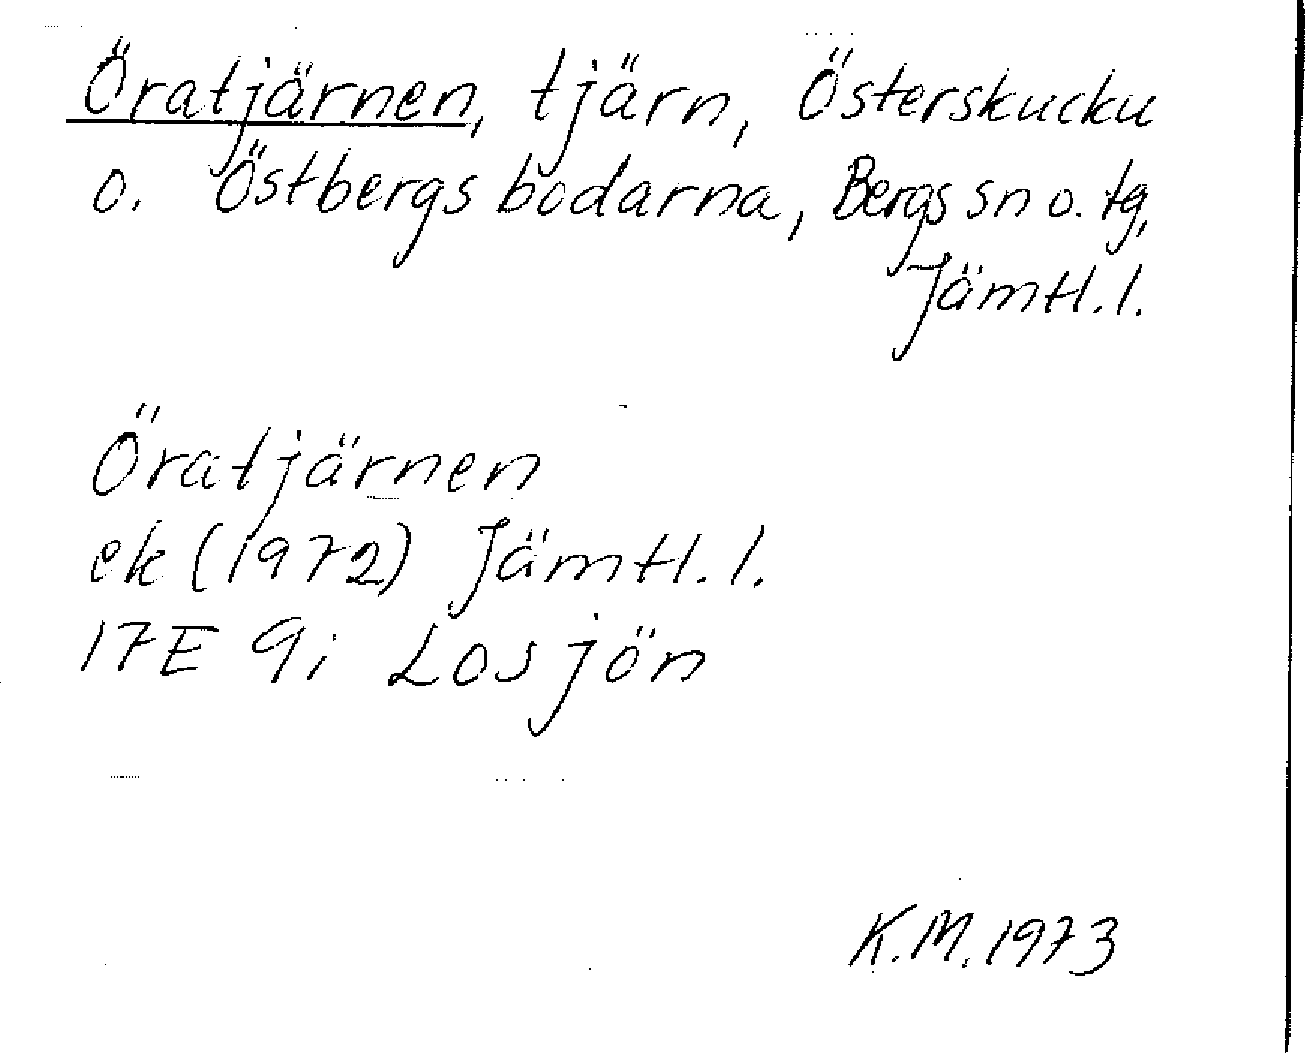 Öratjärnen, tjärn, Österskucku
o. Östbergsbodarna, Bergs sn o. tg,
Jämtl. l.
Öratjärnen
ek (1972) Jämtl. l.
17E 9i Losjön
K.M. 1973